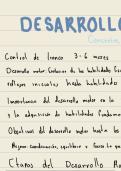 DESARROLLO
Control de tronco 3-6 meses
Desarrollo motor: Evolución de las habilidades
reflejos iniciales hasta habilidades
Importancia del desarrollo motor en la
y la adquisición de habilidades fundamen
Objetivos del desarrollo motor hasta los
Mejorar coordinación, equilibrio y fuerza
Etapas del Desarrollo Mo